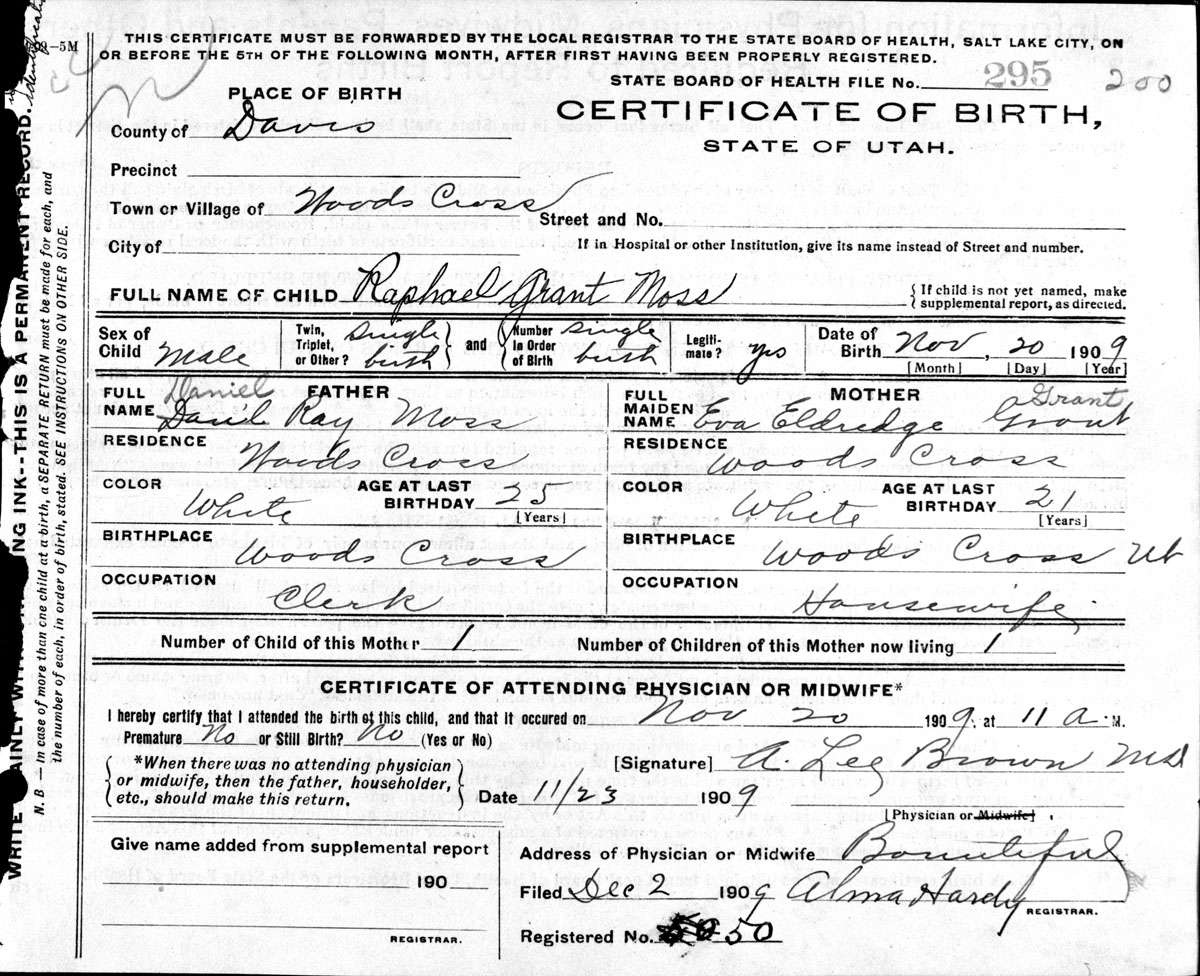 2-5M
THIS CERTIFICATE MUST BE FORWARDED BY THE LOCAL REGISTRAR TO THE STATE BOARD OF HEALTH, SALT LAKE CITY, ON
OR BEFORE THE 5TH OF THE FOLLOWING MONTH, AFTER FIRST HAVING BEEN PROPERLY REGISTERED.
STATE BOARD OF HEALTH FILE No. 295 200
PLACE OF BIRTH
CERTIFICATE OF BIRTH,
STATE OF UTAH.
County of Davis
Precinct
Town or Village of Woods Cross
Street and No.
City of
If in Hospital or other Institution, give its name instead of Street and number.
FULL NAME OF CHILD Raphael Grant Moss
{ If child is not yet named, make
supplemental report, as directed.
Sex of Child Male
Twin, Triplet, or Other? single birth
and
Number In Order of Birth single birth
Legiti-mate? yes
Date of Birth Nov, 20 1909
[Month] [Day] [Year]
FATHER
FULL NAME Daniel
Ray Moss
RESIDENCE Woods Cross
COLOR White
AGE AT LAST BIRTHDAY 23
[Years]
BIRTHPLACE Woods Cross
OCCUPATION Clerk
MOTHER
FULL MAIDEN NAME Eva Eldredge Grant
RESIDENCE Woods Cross
COLOR White
AGE AT LAST BIRTHDAY 21
[Years]
BIRTHPLACE Woods Cross Ut
OCCUPATION Housewife
Number of Child of this Mother 1
Number of Children of this Mother now living 1
CERTIFICATE OF ATTENDING PHYSICIAN OR MIDWIFE*
I hereby certify that I attended the birth of this child, and that it occured on Nov 20 1909, at 11 a. M.
Premature No or Still Birth? No (Yes or No)
{ *When there was no attending physician
or midwife, then the father, householder,
etc., should make this return.
[Signature] A. Lee Brown Md
Date 11/23 1909
[Physician or Midwife]
Give name added from supplemental report
190
REGISTRAR.
Address of Physician or Midwife Bountiful
Filed Dec 2 1909 Alma Hardy
REGISTRAR.
Registered No. 50
INK--THIS IS A PERMANENT RECORD.
N. B.--In case of more than one child at a birth, a SEPARATE RETURN must be made for each, and
the number of each, in order of birth, stated. SEE INSTRUCTIONS ON OTHER SIDE.